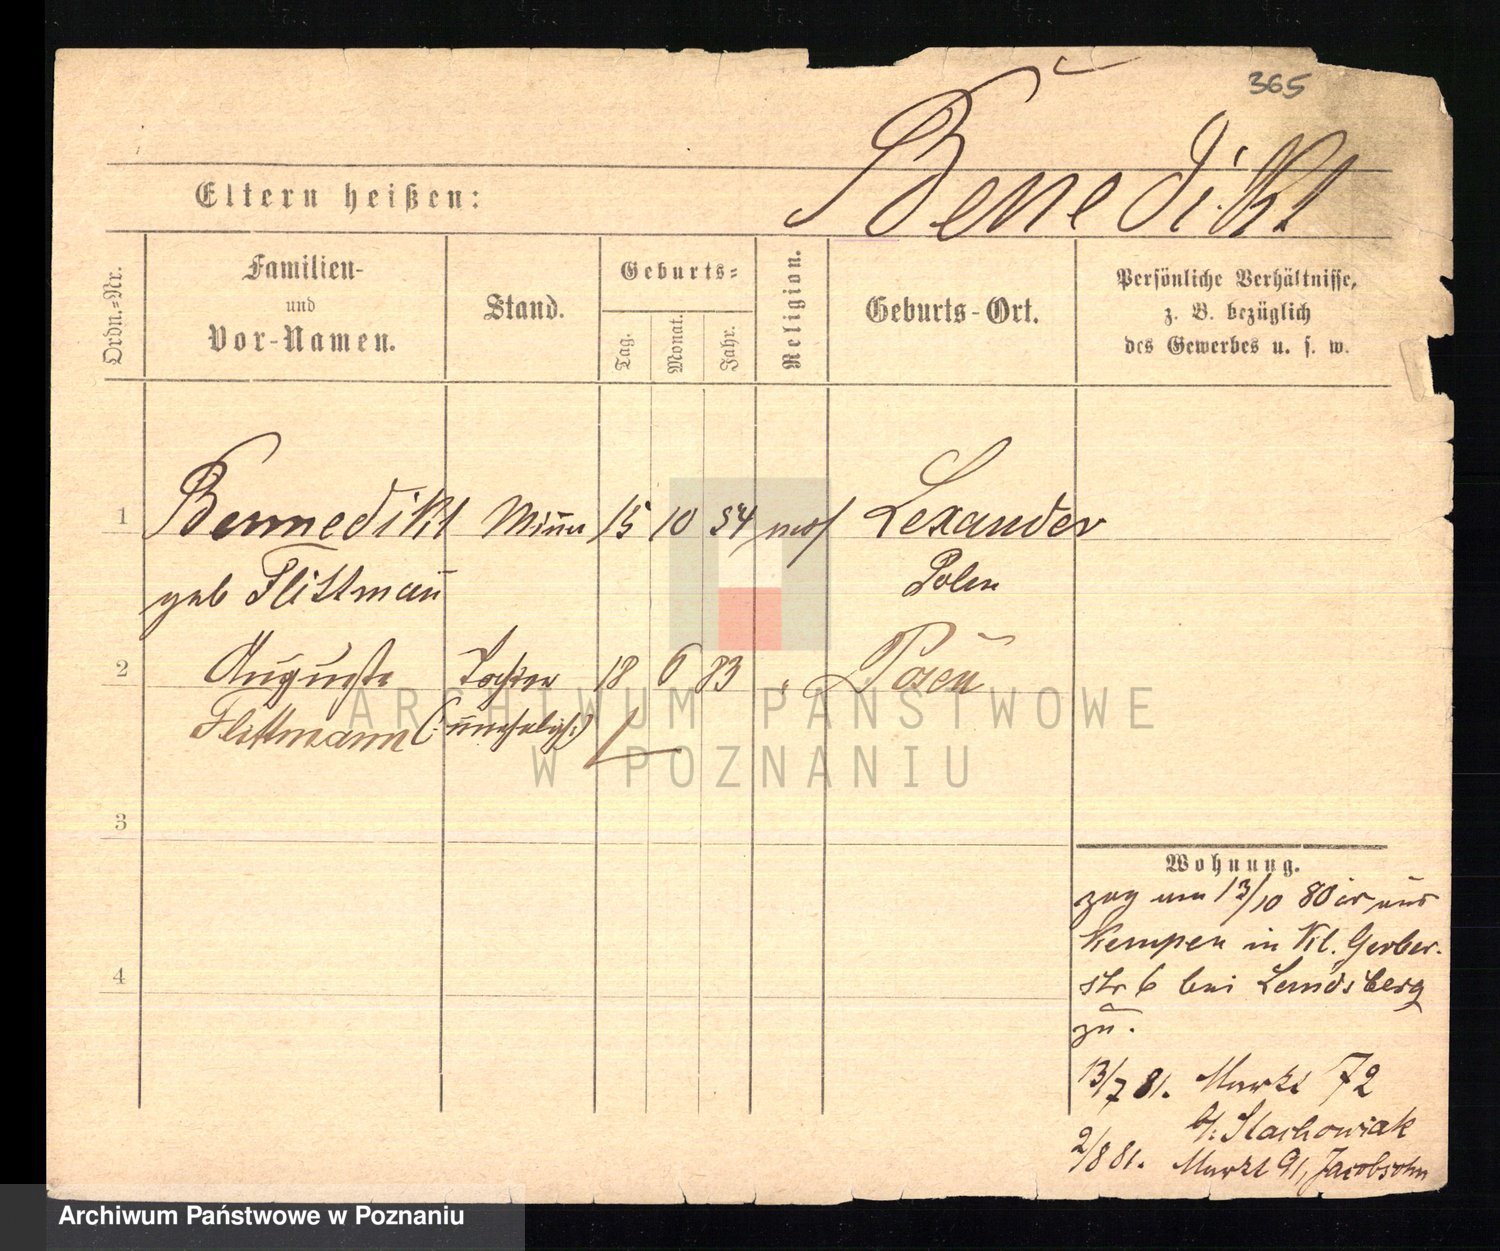 365
Benedikt
Eltern heißen:
Ordn.-Nr.
Familien-
und
Vor-Namen.
Stand.
Geburts-
Tag.
Monat.
Jahr.
Religion.
Geburts-Ort.
Persönliche Verhältnisse,
z. B. bezüglich
des Gewerbes u. s. w.
1 Bennedikt 15 10 54 mos Lexander
geb Flittman̄ Polen
2 Auguste Tochter 18 6 83 " Posen
Flittmann (: unehelich :)
3
4
Wohnung.
zog am 13/10 80 aus
Kempen in Kl. Gerber-
str 6 bei Landsberg
zu.
13/7 81. Markt 72
b/. Stachowiak
2/8 81. Markt 91, Jacobsohn
ARCHIWUM PAŃSTWOWE
W POZNANIU
Archiwum Państwowe w Poznaniu